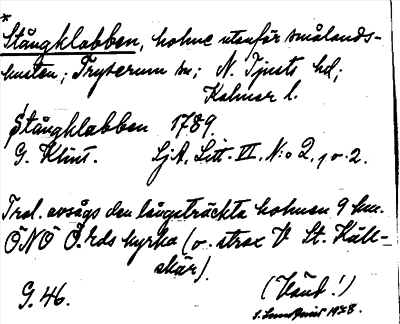 *
Stångklabben, holme utanför smålands-
kusten; Tryserum sn; N. Tjusts hd;
Kalmar l.
Stångklabben 1789.
G. Klint. SjA. Litt. VI. N:o 2, 1 o. 2.
Trol. avsågs den långsträckta holmen 9 km.
ÖNÖ Ö. Eds kyrka (o. strax V St. Käll-
skär).
G. 46. (Vänd!)
1928.